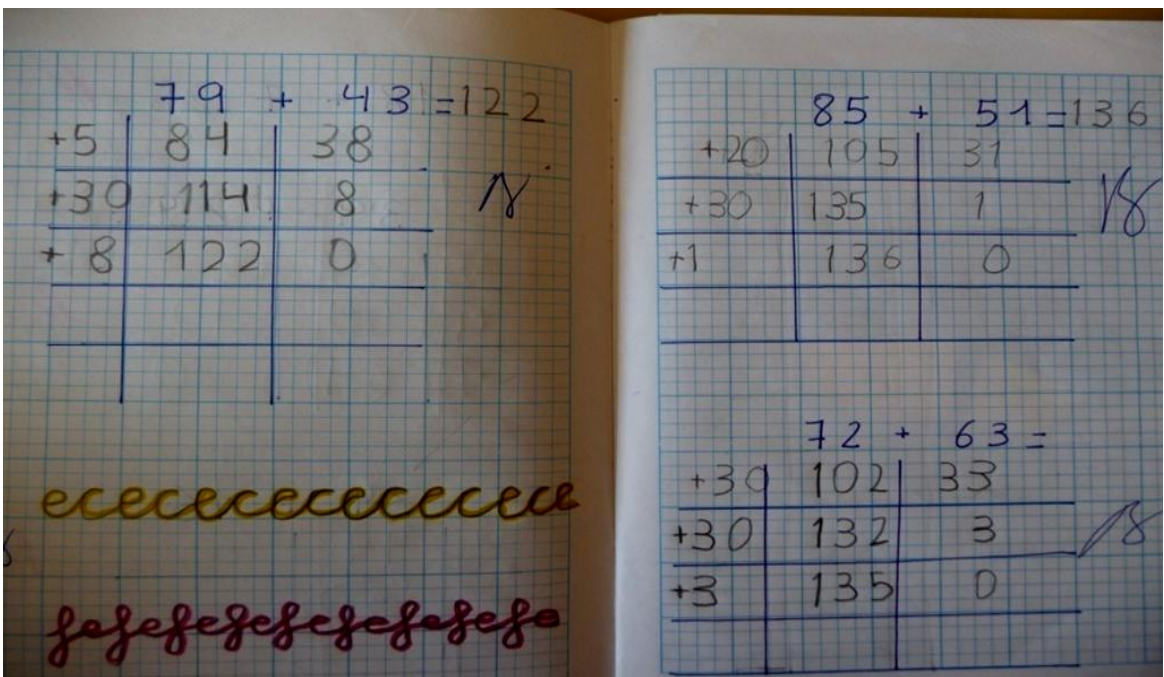 79 + 43 = 122
+5 84 38
+30 114 8
+8 122 0
ececececececececece
fefefefefefefefefe
85 + 51 = 136
+20 105 31
+30 135 1
+1 136 0
72 + 63 =
+30 102 33
+30 132 3
+3 135 0